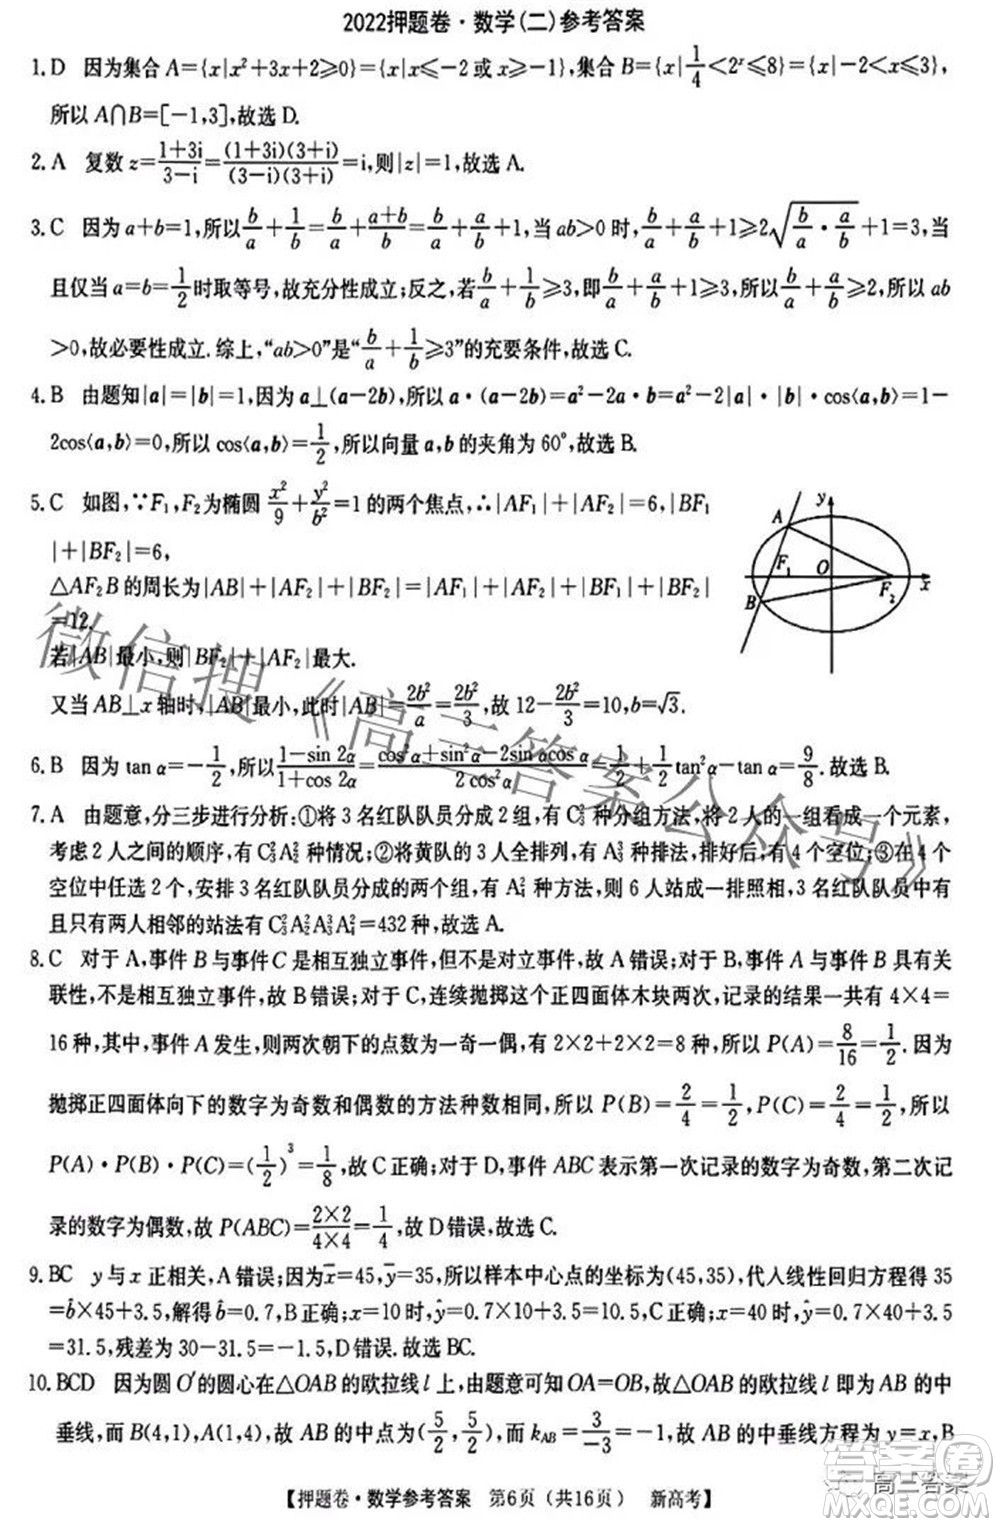 2022押题卷·数学(二)参考答案
1. D 因为集合 A={x|x²+3x+2⩾0}={x|x⩽-2 或 x⩾-1}, 集合 B={x|1/4<2ˣ⩽8}={x|-2<x⩽3},
所以 A∩B=[-1,3],故选 D.
2. A 复数 z=(1+3i)/(3-i)=(1+3i)(3+i)/(3-i)(3+i)=i,则|z|=1,故选 A.
3. C 因为 a+b=1,所以 b/a+1/b=b/a+(a+b)/b=b/a+a/b+1,当 ab>0 时, b/a+a/b+1⩾2√(b/a·a/b)+1=3,当
且仅当 a=b=1/2 时取等号,故充分性成立;反之,若 b/a+1/b⩾3,即 b/a+a/b+1⩾3,所以 b/a+a/b⩾2,所以 ab
>0,故必要性成立.综上,“ab>0”是“b/a+1/b⩾3”的充要条件,故选 C.
4. B 由题知|a|=|b|=1,因为 a⊥(a-2b),所以 a·(a-2b)=a²-2a·b=a²-2|a|·|b|·cos⟨a,b⟩=1-
2cos⟨a,b⟩=0,所以 cos⟨a,b⟩=1/2,所以向量 a,b 的夹角为 60°,故选 B.
5. C 如图,∵F₁,F₂为椭圆 x²/9+y²/b²=1 的两个焦点,∴|AF₁|+|AF₂|=6,|BF₁
|+|BF₂|=6,
△AF₂B 的周长为|AB|+|AF₂|+|BF₂|=|AF₁|+|AF₂|+|BF₁|+|BF₂|
=12.
若|AB|最小,则|BF₂|+|AF₂|最大.
又当 AB⊥x 轴时,|AB|最小,此时|AB|=2b²/a=2b²/3,故 12-2b²/3=10,b=√3.
y
A
F₁
O
F₂
x
B
6. B 因为 tan α=-1/2,所以 (1-sin 2α)/(1+cos 2α)=(cos²α+sin²α-2sin αcos α)/(2 cos²α)=1/2+1/2 tan²α-tan α=9/8.故选 B.
7. A 由题意,分三步进行分析:①将 3 名红队队员分成 2 组,有 C₃² 种分组方法,将 2 人的一组看成一个元素,
考虑 2 人之间的顺序,有 C₃²A₂² 种情况;②将黄队的 3 人全排列,有 A₃³ 种方法,有 4 个空位;③在 4 个
空位中任选 2 个,安排 3 名红队队员分成的两个组,有 A₄² 种方法,则 6 人站成一排照相,3 名红队队员中有
且只有两人相邻的站法有 C₃²A₂²A₃³A₄²=432 种,故选 A.
8. C 对于 A,事件 B 与事件 C 是相互独立事件,但不是对立事件,故 A 错误;对于 B,事件 A 与事件 B 具有关
联性,不是相互独立事件,故 B 错误;对于 C,连续抛掷这个正四面体木块两次,记录的结果一共有 4×4=
16 种,其中,事件 A 发生,则两次朝下的点数为一奇一偶,有 2×2+2×2=8 种,所以 P(A)=8/16=1/2.因为
抛掷正四面体向下的数字为奇数和偶数的方法种数相同,所以 P(B)=2/4=1/2,P(C)=2/4=1/2,所以
P(A)·P(B)·P(C)=(1/2)³=1/8,故 C 正确;对于 D,事件 ABC 表示第一次记录的数字为奇数,第二次记
录的数字为偶数,故 P(ABC)=(2×2)/(4×4)=1/4,故 D 错误,故选 C.
9. BC y 与 x 正相关,A 错误;因为 x̄=45,ȳ=35,所以样本中心点的坐标为(45,35),代入线性回归方程得 35
=b̂×45+3.5,解得 b̂=0.7,B 正确;x=10 时,ŷ=0.7×10+3.5=10.5,C 正确;x=40 时,ŷ=0.7×40+3.5
=31.5,残差为 30-31.5=-1.5,故 D 错误.故选 BC.
10. BCD 因为圆 O′的圆心在△OAB 的欧拉线 l 上,由题意可知 OA=OB,故△OAB 的欧拉线 l 即为 AB 的中
垂线,而 B(4,1),A(1,4),故 AB 的中点为(5/2,5/2),而 k_AB=3/-3=-1,故 AB 的中垂线方程为 y=x,B
【押题卷·数学参考答案 第6页(共16页) 新高考】
微信搜《高三答案公众号》
高三答案
答案圈